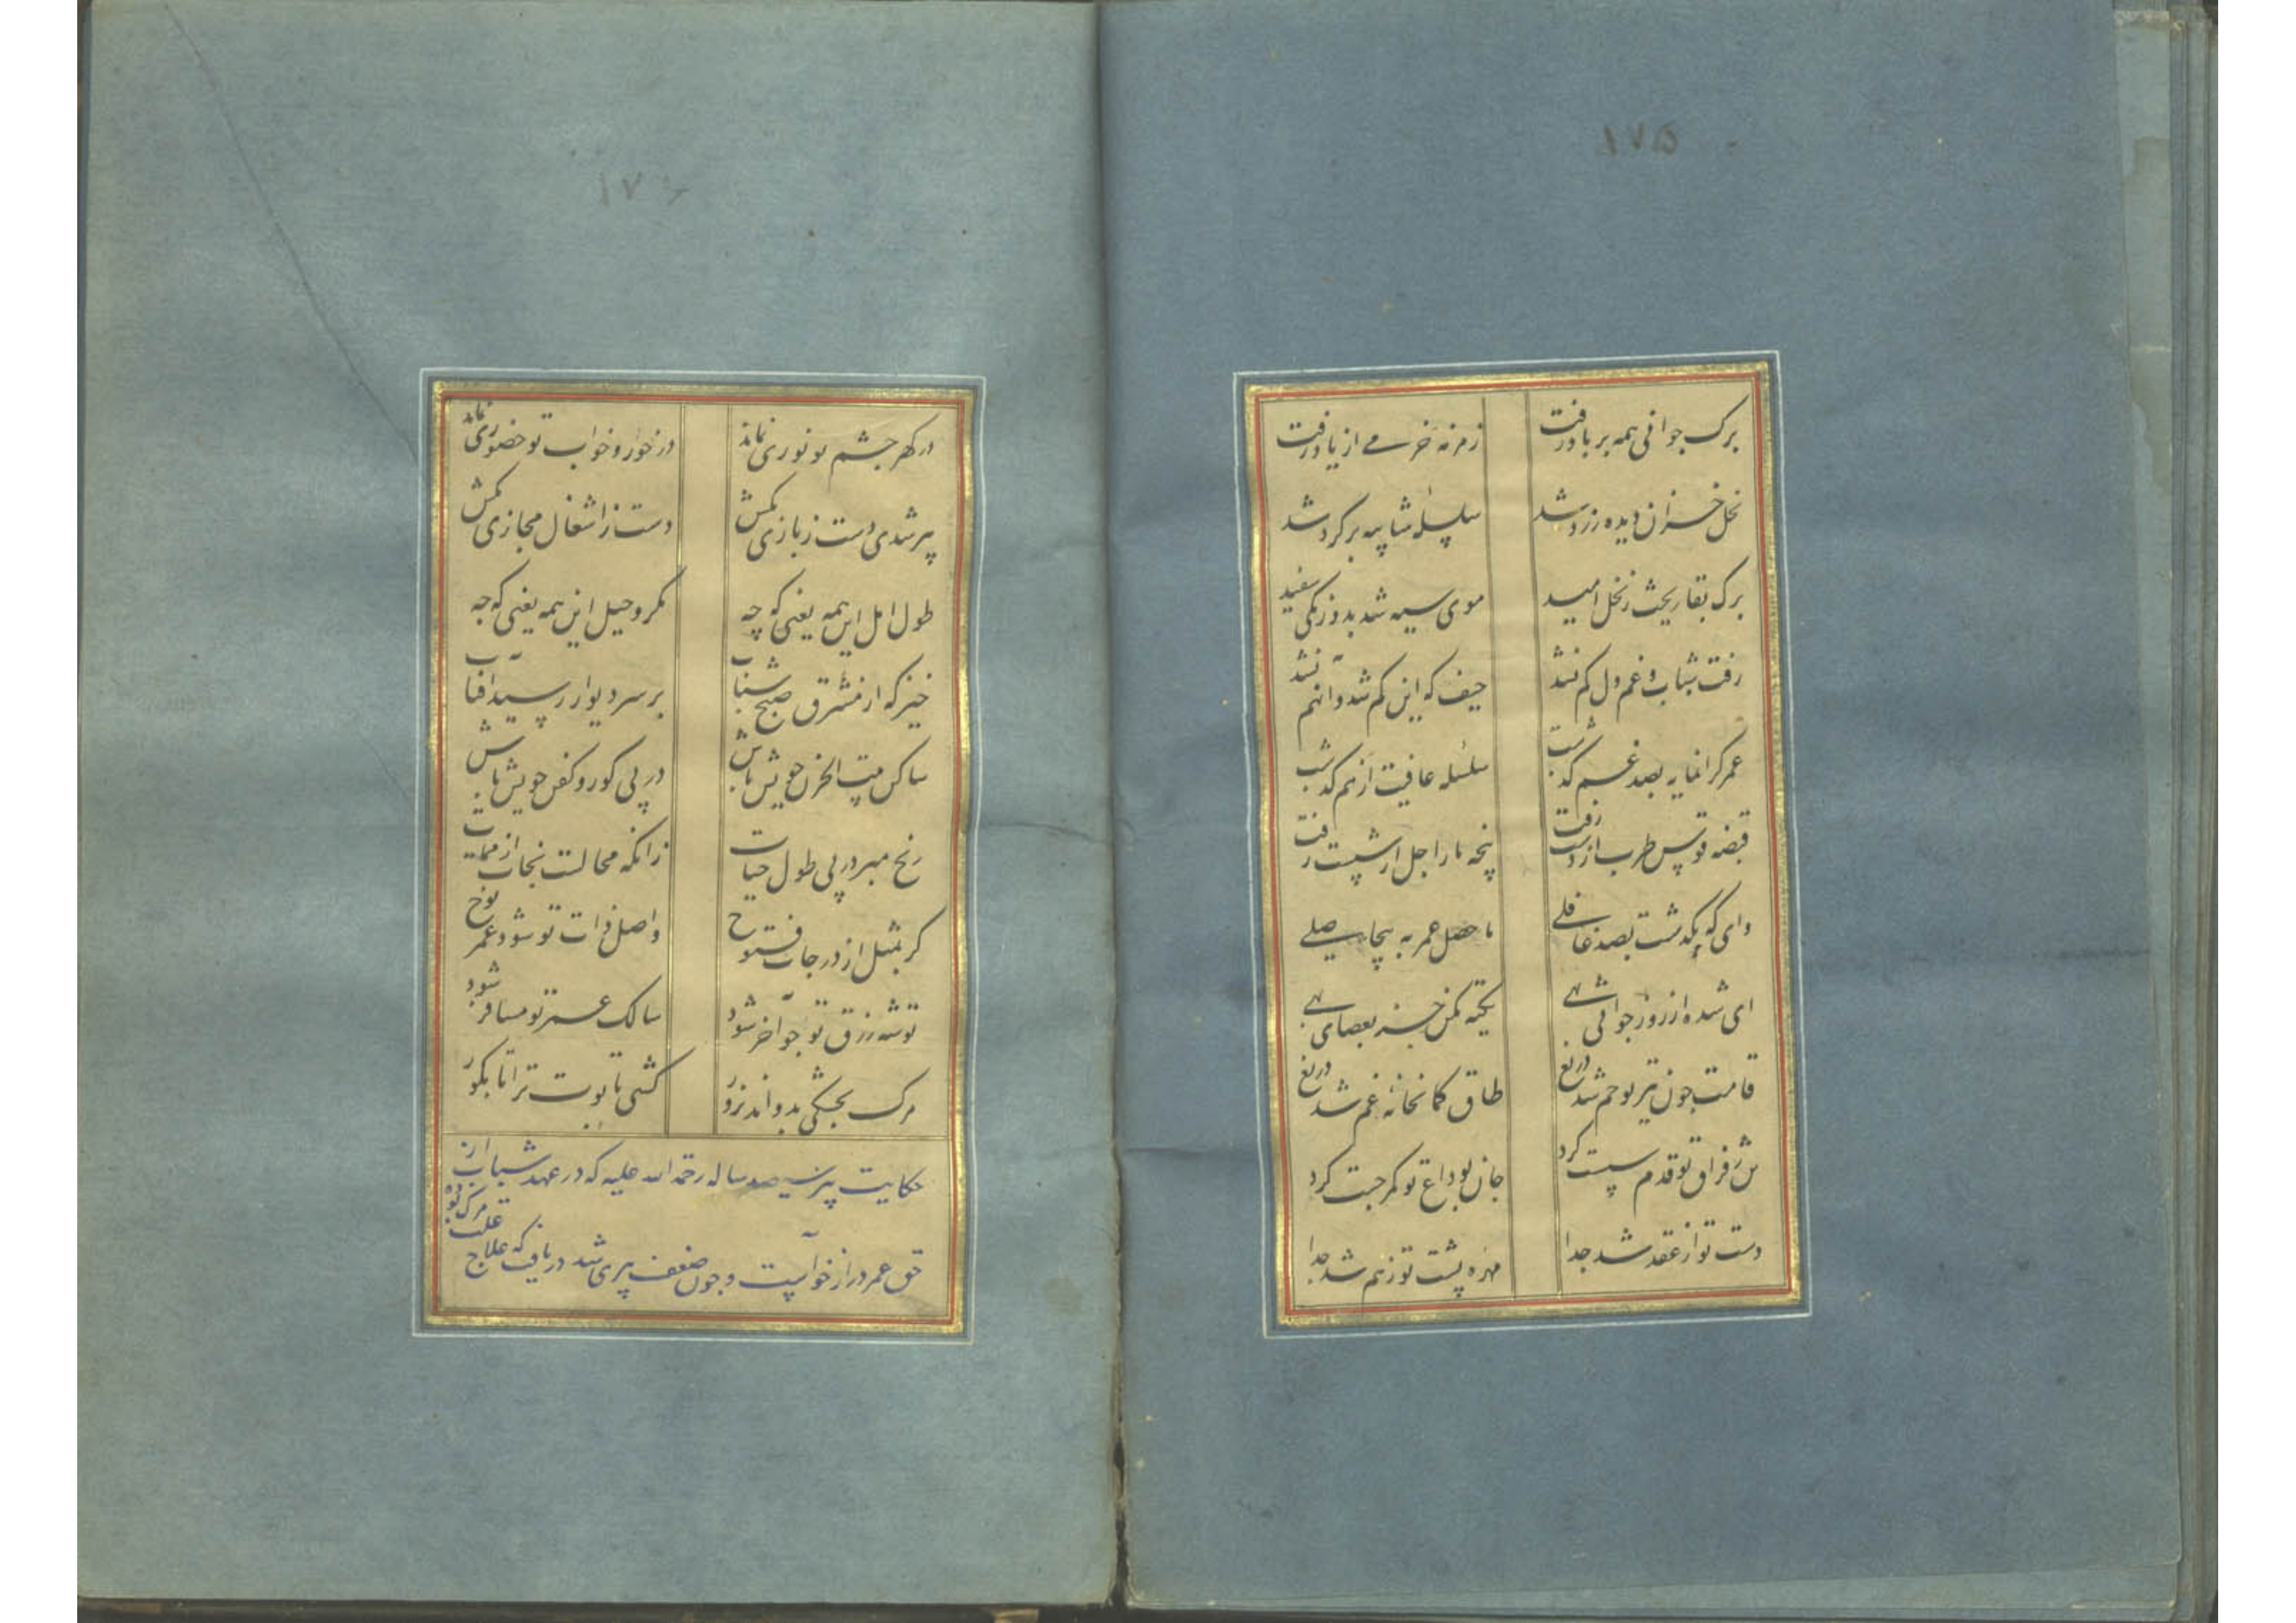 ۱۷۵
برک جوانی همه بر باد رفت
زمزمه خرمے از یاد رفت
نخل خزان دیده زرد شد
سلسله مشاپیه بر کرد شد
برک بقا ریخت ز نخل امید
موی سیه شد بدو زنکی سفید
رفت شباب و غم دل کم نشد
حیف که این کم شد و آنهم نشد
عمر کرانمایه بصد غم کذشت
سلسله عافیت از هم کذشت
قبضه قوس طرب از دست رفت
پنجه ما را اجل از شست رفت
وای که بکذشت بصد غافلے
ماحصل عمر به بیحاصلے
ای شده از روز جوانی تهے
تکیه مکن جز بعصای بهے
قامت چون تیر تو خم شد دریغ
طاق کمانخانۀ غم شد دریغ
بس ز فراق تو قدم سست کرد
جان بوداع تو کمر چست کرد
دست تو از عقد شد جدا
مهره پشت تو زهم شد جدا
۱۷۶
در کهر چشم تو نوری نماند
در خور و خواب تو حضوری نماند
پیر شدی دست ز بازی بکش
دست ز اشغال مجازی بکش
طول امل این همه یعنی که چه
مکر و حیل این همه یعنی که چه
خیز که از مشرق صبح شباب
بر سر دیوار رسید آفتاب
ساکن بیت الحزن خویش باش
در پی کور و کفن خویش باش
رنج مبر در پی طول حیات
زانکه محالست نجات از ممات
کر بمثل از درجات فتوح
واصل ذات تو شود عمر نوح
توشه رزق تو چو آخر شود
سالک عمر تو مسافر شود
مرک بخشکی بدواند بزور
کشتی تابوت ترا تا بکور
حکایت پیر سیصد ساله رحمة الله علیه که در عهد شباب از
حق عمر دراز خواست و چون ضعف پیری شد دریافت که علاج علت مرک بود